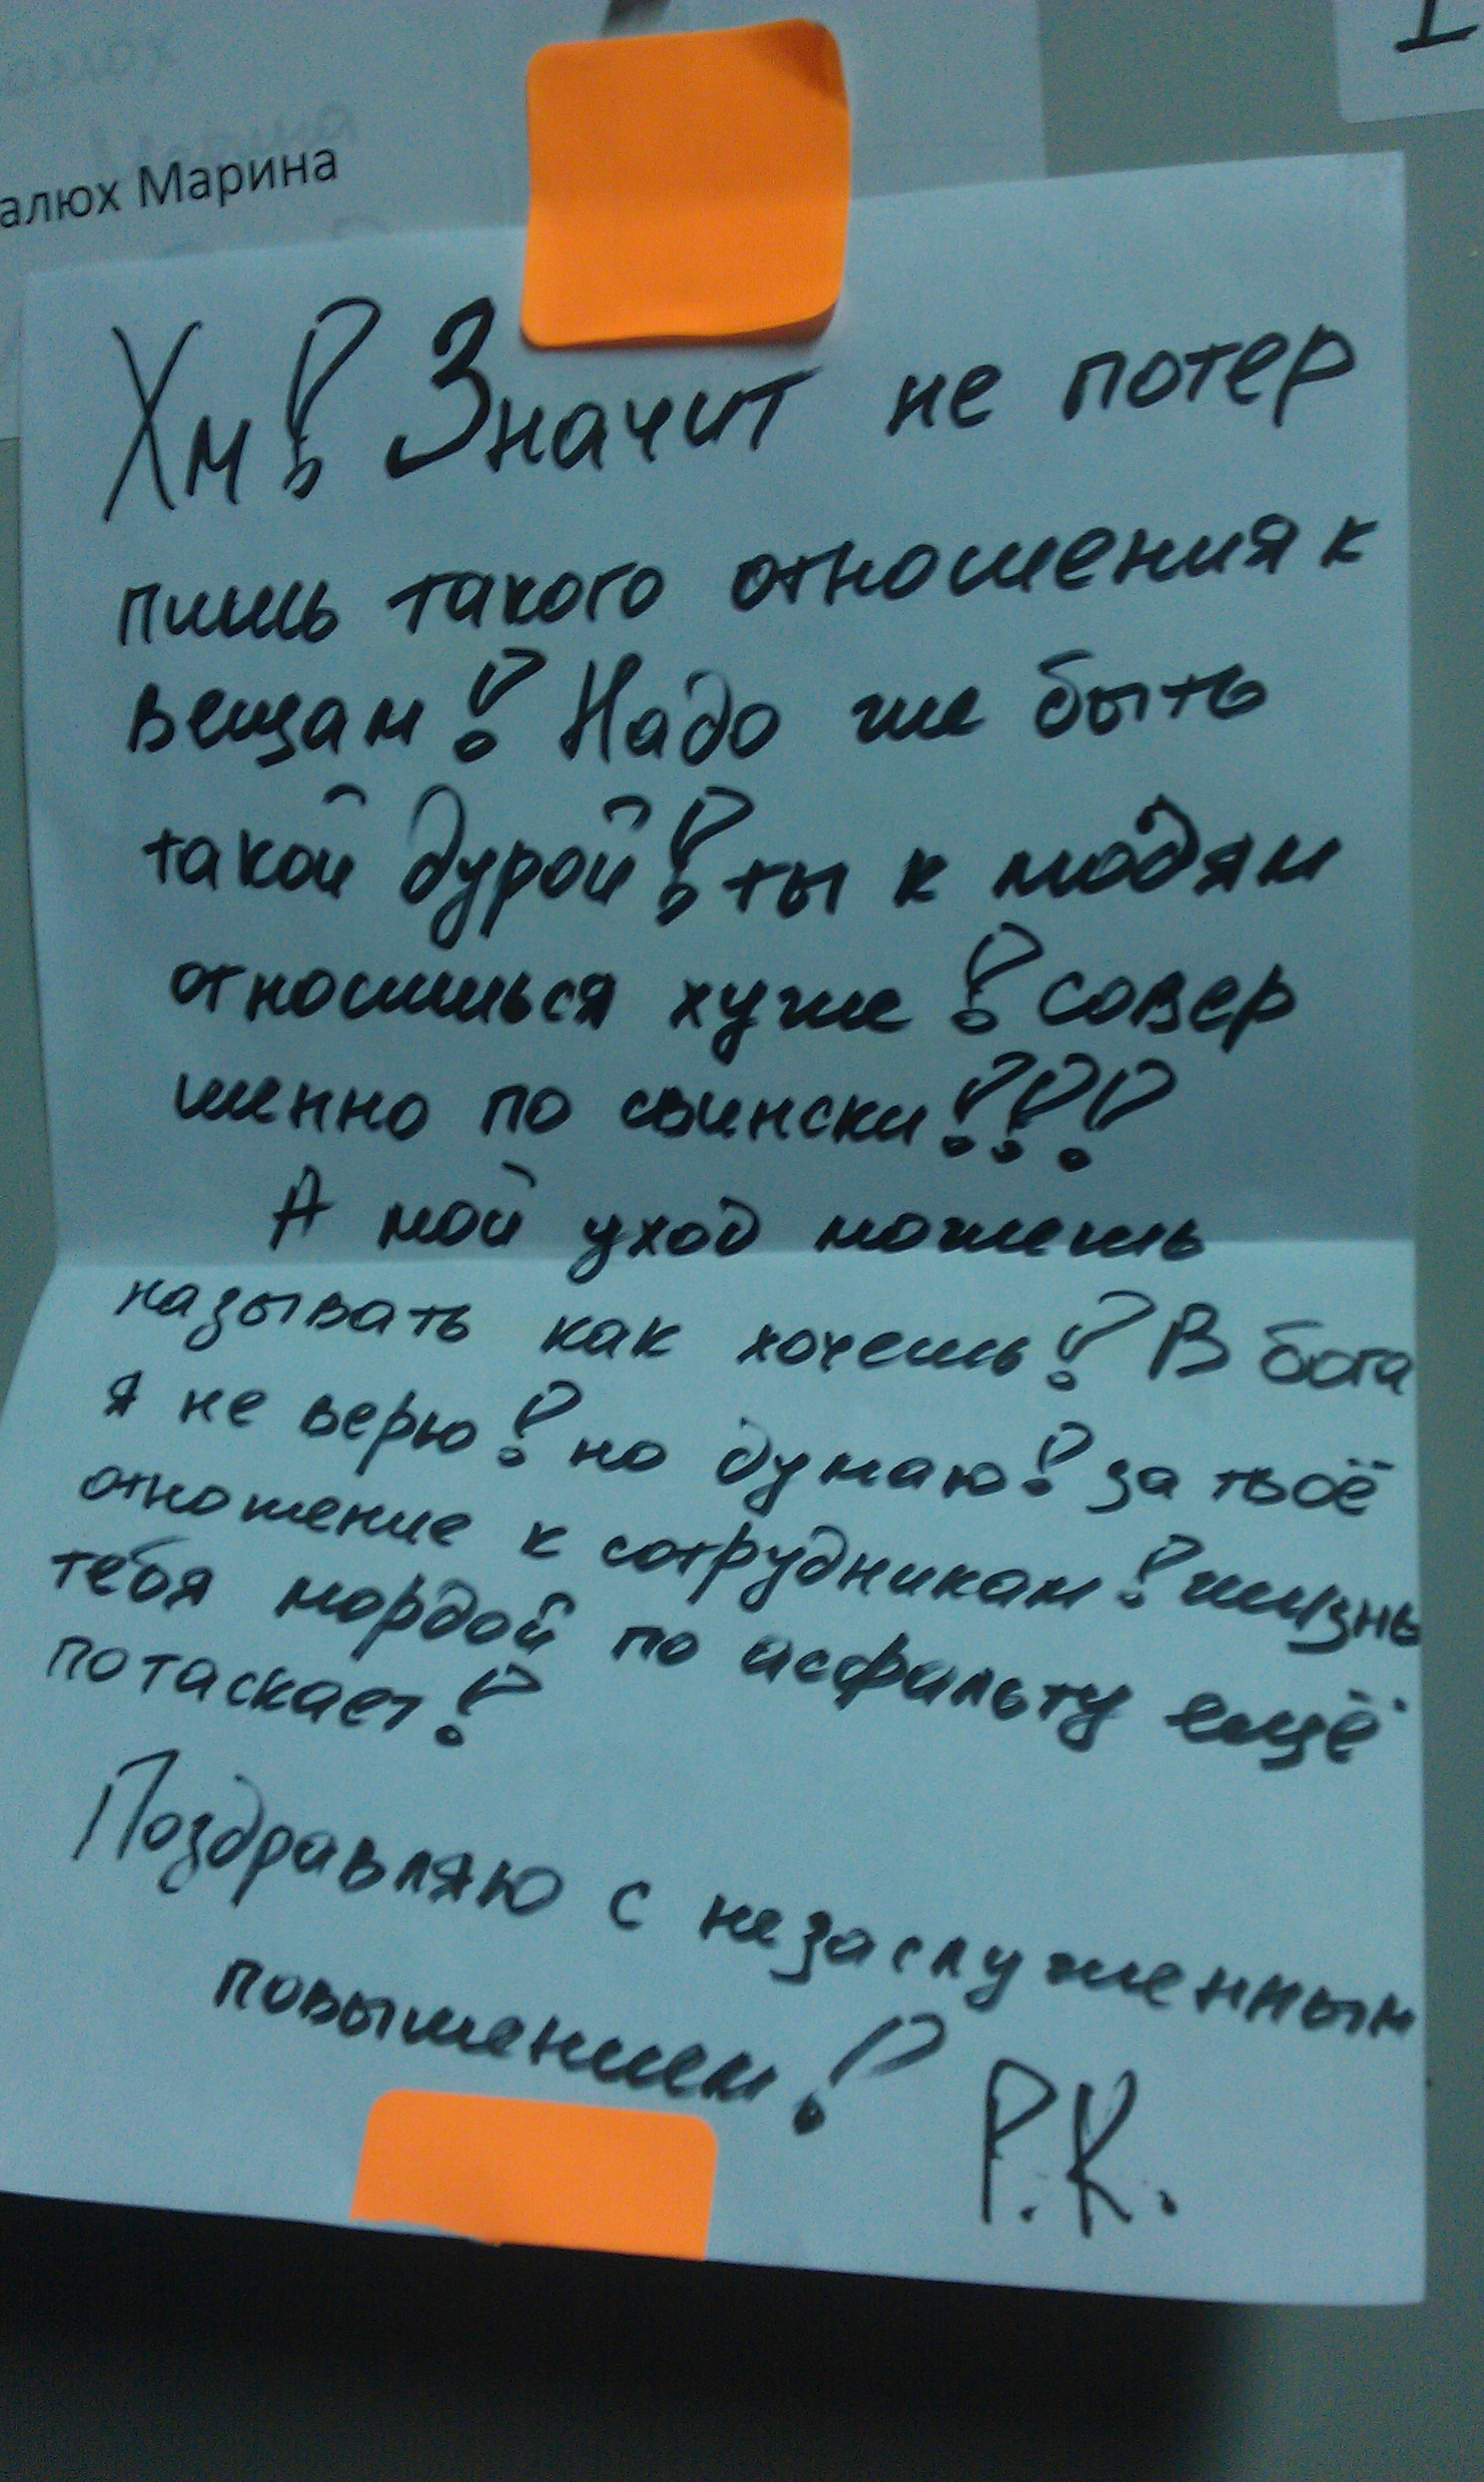 алюх Марина
Хм! Значит не потер
пишь такого отношения к
вещам! Надо же быть
такой дурой! ты к людям
относишься хуже! совер
шенно по свински!!!
А мой уход можешь
называть как хочешь! В бога
я не верю! но думаю! за твоё
отношение к сотрудникам! жизнь
тебя мордой по асфальту ещё
потаскает!
Поздравляю с незаслуженным
повышением!
Р.К.